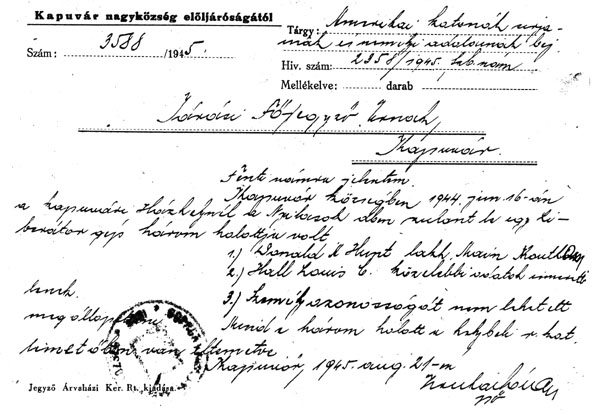 Kapuvár nagyközség elöljáróságától
Szám: 3588 /1945.
Tárgy: Amerikai katonák
és adatainak bej
Hiv. szám: 2858/1945.
Mellékelve: darab
Járási Főjegyző Urnak,
Kapuvár.
Fenti számra jelentem.
Kapuvár községben 1944. jun. 16-án
a kapuvári le egy Li-
berátor gép három halottja volt
1.) Donald Hunt lakh. Main
2.) Hall Louis C. közelebbi adatok ismeret
lenek.
3.) Személyazonosságát nem lehetett
megállapítani
Mind a három halott a helybeli r. kat.
temetőben van eltemetve
Kapuvár, 1945. aug. 21-n
Jegyző Árvaházi Ker. Rt. kiadása.